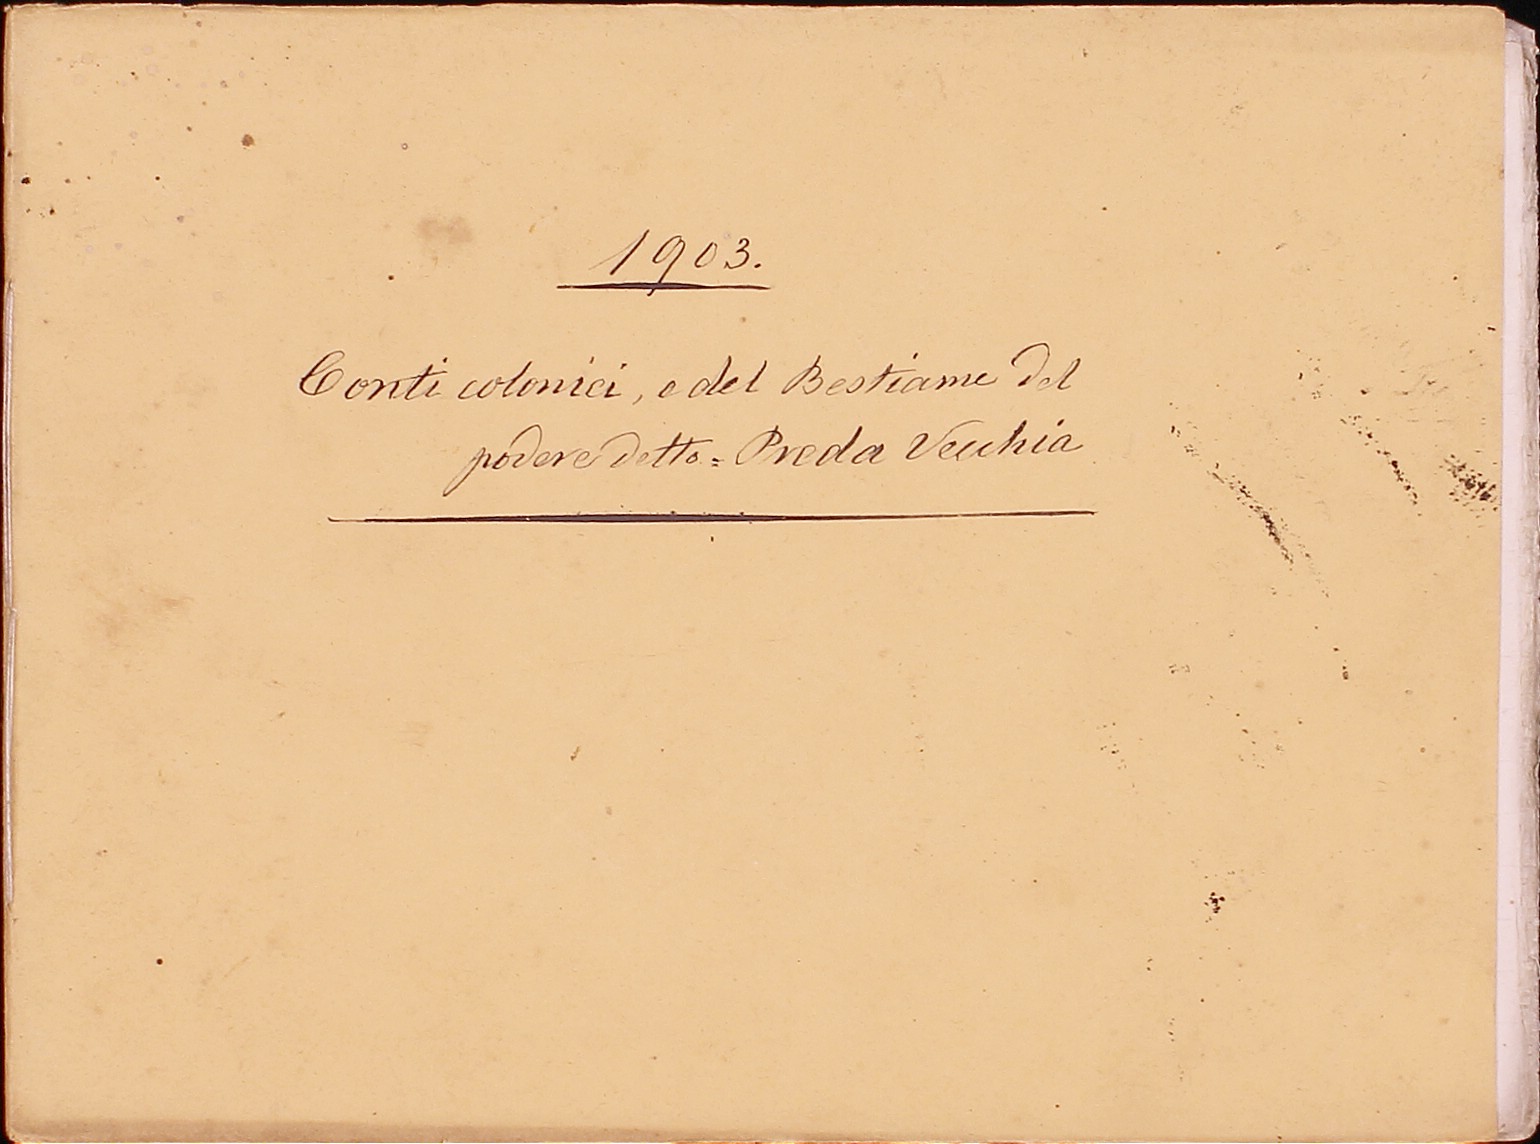 1903.
Conti colonici, e del Bestiame del
podere detto = Preda Vecchia